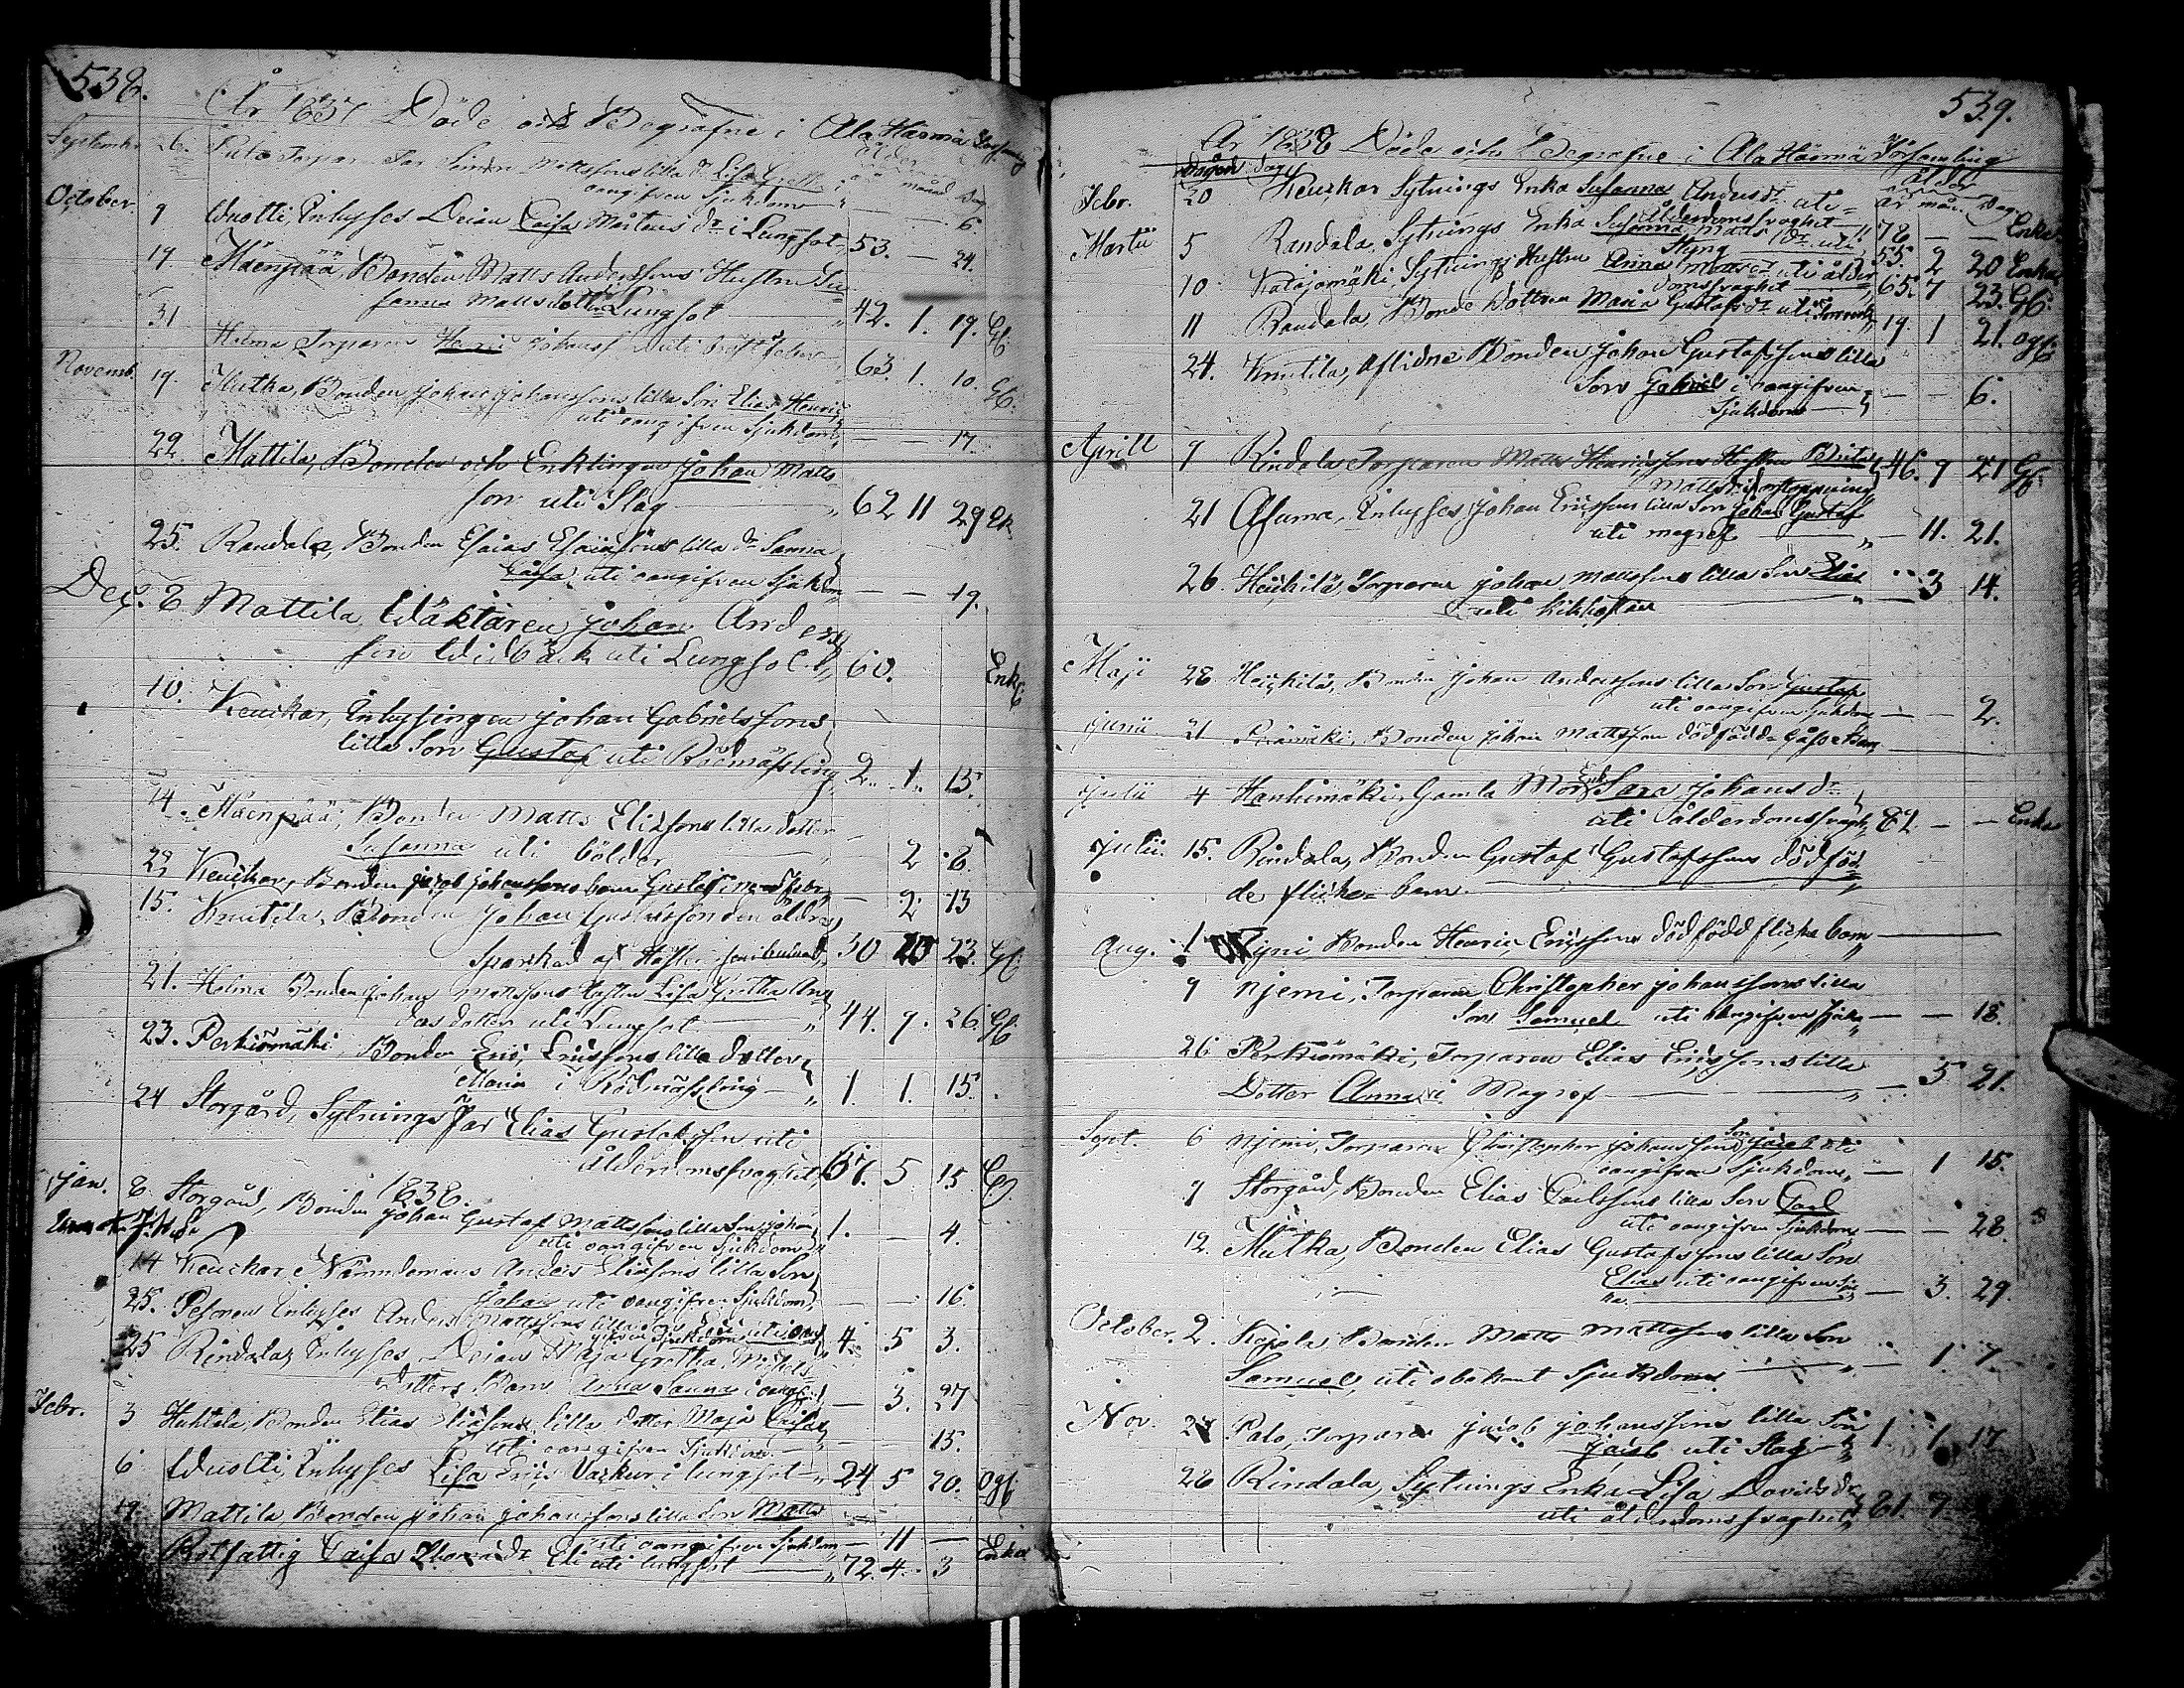 538.
År 1837 Döde och Begrafne i Ala Härmä
ålder
September 26. Torpar Mattssons lilla dr Lisa Gretha i
oangifven Sjukdom — — 6.
October. 9 Wuolti, Inhyses Caisa Mårtens dr i Lungsot 53. — 24.
19. Mäenpää, Bonden Matts Anderssons Hustru Su
sanna Mattsdotter Lungsot 42. 1. 19. Gf.
31 Holma Torparen Henric Johanss uti 63. 1. 10. Gf.
Novemb. 19. Hutka, Bonden Johan Johanssons lilla Son Elias Henric
uti oangifven Sjukdom — — 17.
22. Mattila, Bonden och Enklingen Johan Matts
son uti Slag 62 11 29 Ek
25. Randala, Bonden Esaias Esaiassons lilla dr Sanna
Caisa, uti oangifven Sjukdom — — 19.
Dec. 8 Mattila, Wäktaren Johan Anders
son Widbäck uti Lungsot 60. Enkl
10. Keuckar, Inhysingen Johan Gabrielssons
lilla Son Gustaf uti Rödmässling 2. 1. 13.
14. Mäenpää, Bonden Matts Eliassons lilla dotter
Susanna uti bölder 2 8.
29 Keuckar, Bonden Jacob Johanssons barn Gustaf — 2 13
15. Knutila, Bonden Johan Gustafsson den äldre
Sparkad af Häst 30 10 23. Gf.
21. Holma Bonden Johan Mattssons Hustru Lisa Gretha An
ders dotter uti Lungsot 44. 9. 26. Gf
23. Perkiömäki, Bonden Eric Ericssons lilla dotter
Maria i Rödmässling 1. 1. 15.
24 Storgård, Sytnings Far Elias Gustafsson uti
Ålderdomssvaghet 67. 5 15
1838.
Jan. 8 Storgård, Bonden Johan Gustaf Mattssons lilla Son Johan
uti oangifven Sjukdom 1. — 4.
14 Keuckar Nämndemans Anders Eliassons lilla Son
Johan uti oangifven Sjukdom — — 16.
25. Pesonen Inhyses Anders Mattssons lilla
gifven Sjukdom 4. 5 3.
25 Rindala, Inhyses Maja Gretha Michels
Dotters Barn Anna Sanna i oangif — 3. 27
Febr. 3 Huhtala, Bonden Elias Eliassons lilla dotter Maja Caisa
uti oangifven Sjukdom — — 15.
6 Wuolti, Inhyses Lisa Erics i lungsot 24 5 20. Ogf
19 Mattila Bonden Johan Johanssons lilla Son Matts
uti oangifven Sjukdom — 11 —
Rotfattig Caisa uti lungsot 72. 4. 3 Enka
539.
År 1838 Döde och Begrafne i Ala Härmä Församling
dag ålder
år mån. Dag.
Febr. 20 Keuckar Sytnings Enka Susanna Anders dr uti
ålderdomssvaghet 78 — — Enka
Martii 5 Randala, Sytnings Enka Susanna Matts dr uti
Styng 55 2 20 Enka
10 Katajamäki, Sytnings Hustru Anna Matts dr uti ålder
domssvaghet 65. 7 23. Gf.
11 Randala, Bonde Dottren Maria Gustafs dr uti 19. 1 21. ogf
24. Knutila, Aflidne Bonden Johan Gustafssons lilla
Son Gabriel i oangifven
Sjukdom — — 6.
Aprill 9 Rindala, Torparen Matts Henricssons Hustru Brita
Mattsdr i förstoppning 46. 9 21 Gf.
21 Asuma, Inhyses Johan Ericssons lilla Son Johan Gustaf
uti magref — 11. 21.
26. Heickilä, Torparen Johan Mattssons lilla Son Elias
uti kikhostan — 3 14.
Maji 28 Heickilä, Bonden Johan Anderssons lilla Son Gustaf
uti oangifven Sjukdom — — 2.
Junii 21 Bonden Johan Mattsson dödfödd Gåsse barn
Julii 4 Hanhimäki, Gamla Mor Enk Sara Johans dr
uti ålderdomssvagh. 82 — — Enka
Julii. 15. Rindala, Bonden Gustaf Gustafssons dödföd
de flicke barn
Aug. 1 Bonden Henric Ericssons dödfödd flicka barn
9 Njemi, Torparen Christopher Johanssons lilla
Son Samuel uti oangifven Sjuk — — 18.
26 Perkiömäki, Torparen Elias Ericssons lilla
Dotter Anna, i Magref — 5 21.
Sept. 6 Njemi, Torparen Christopher Johanssons Son Jacob uti
oangifven Sjukdom — 1 15.
9 Storgård, Bonden Elias Carlssons lilla Son Carl
uti oangifven Sjukdom — — 28.
12. Hutka, Bonden Elias Gustafssons lilla Son
Elias uti oangifven Sju — 3. 29.
October. 2. Kojola Bonden Matts Mattssons lilla Son
Samuel, uti obekant Sjukdom — 1. 7.
Nov. 24 Palo, Torparen Jacob Johanssons lilla Son
Jacob uti Slag 1. 1 17
28 Rindala, Sytnings Enka Lisa Davids dr
uti ålderdomssvaghet 81. 9.